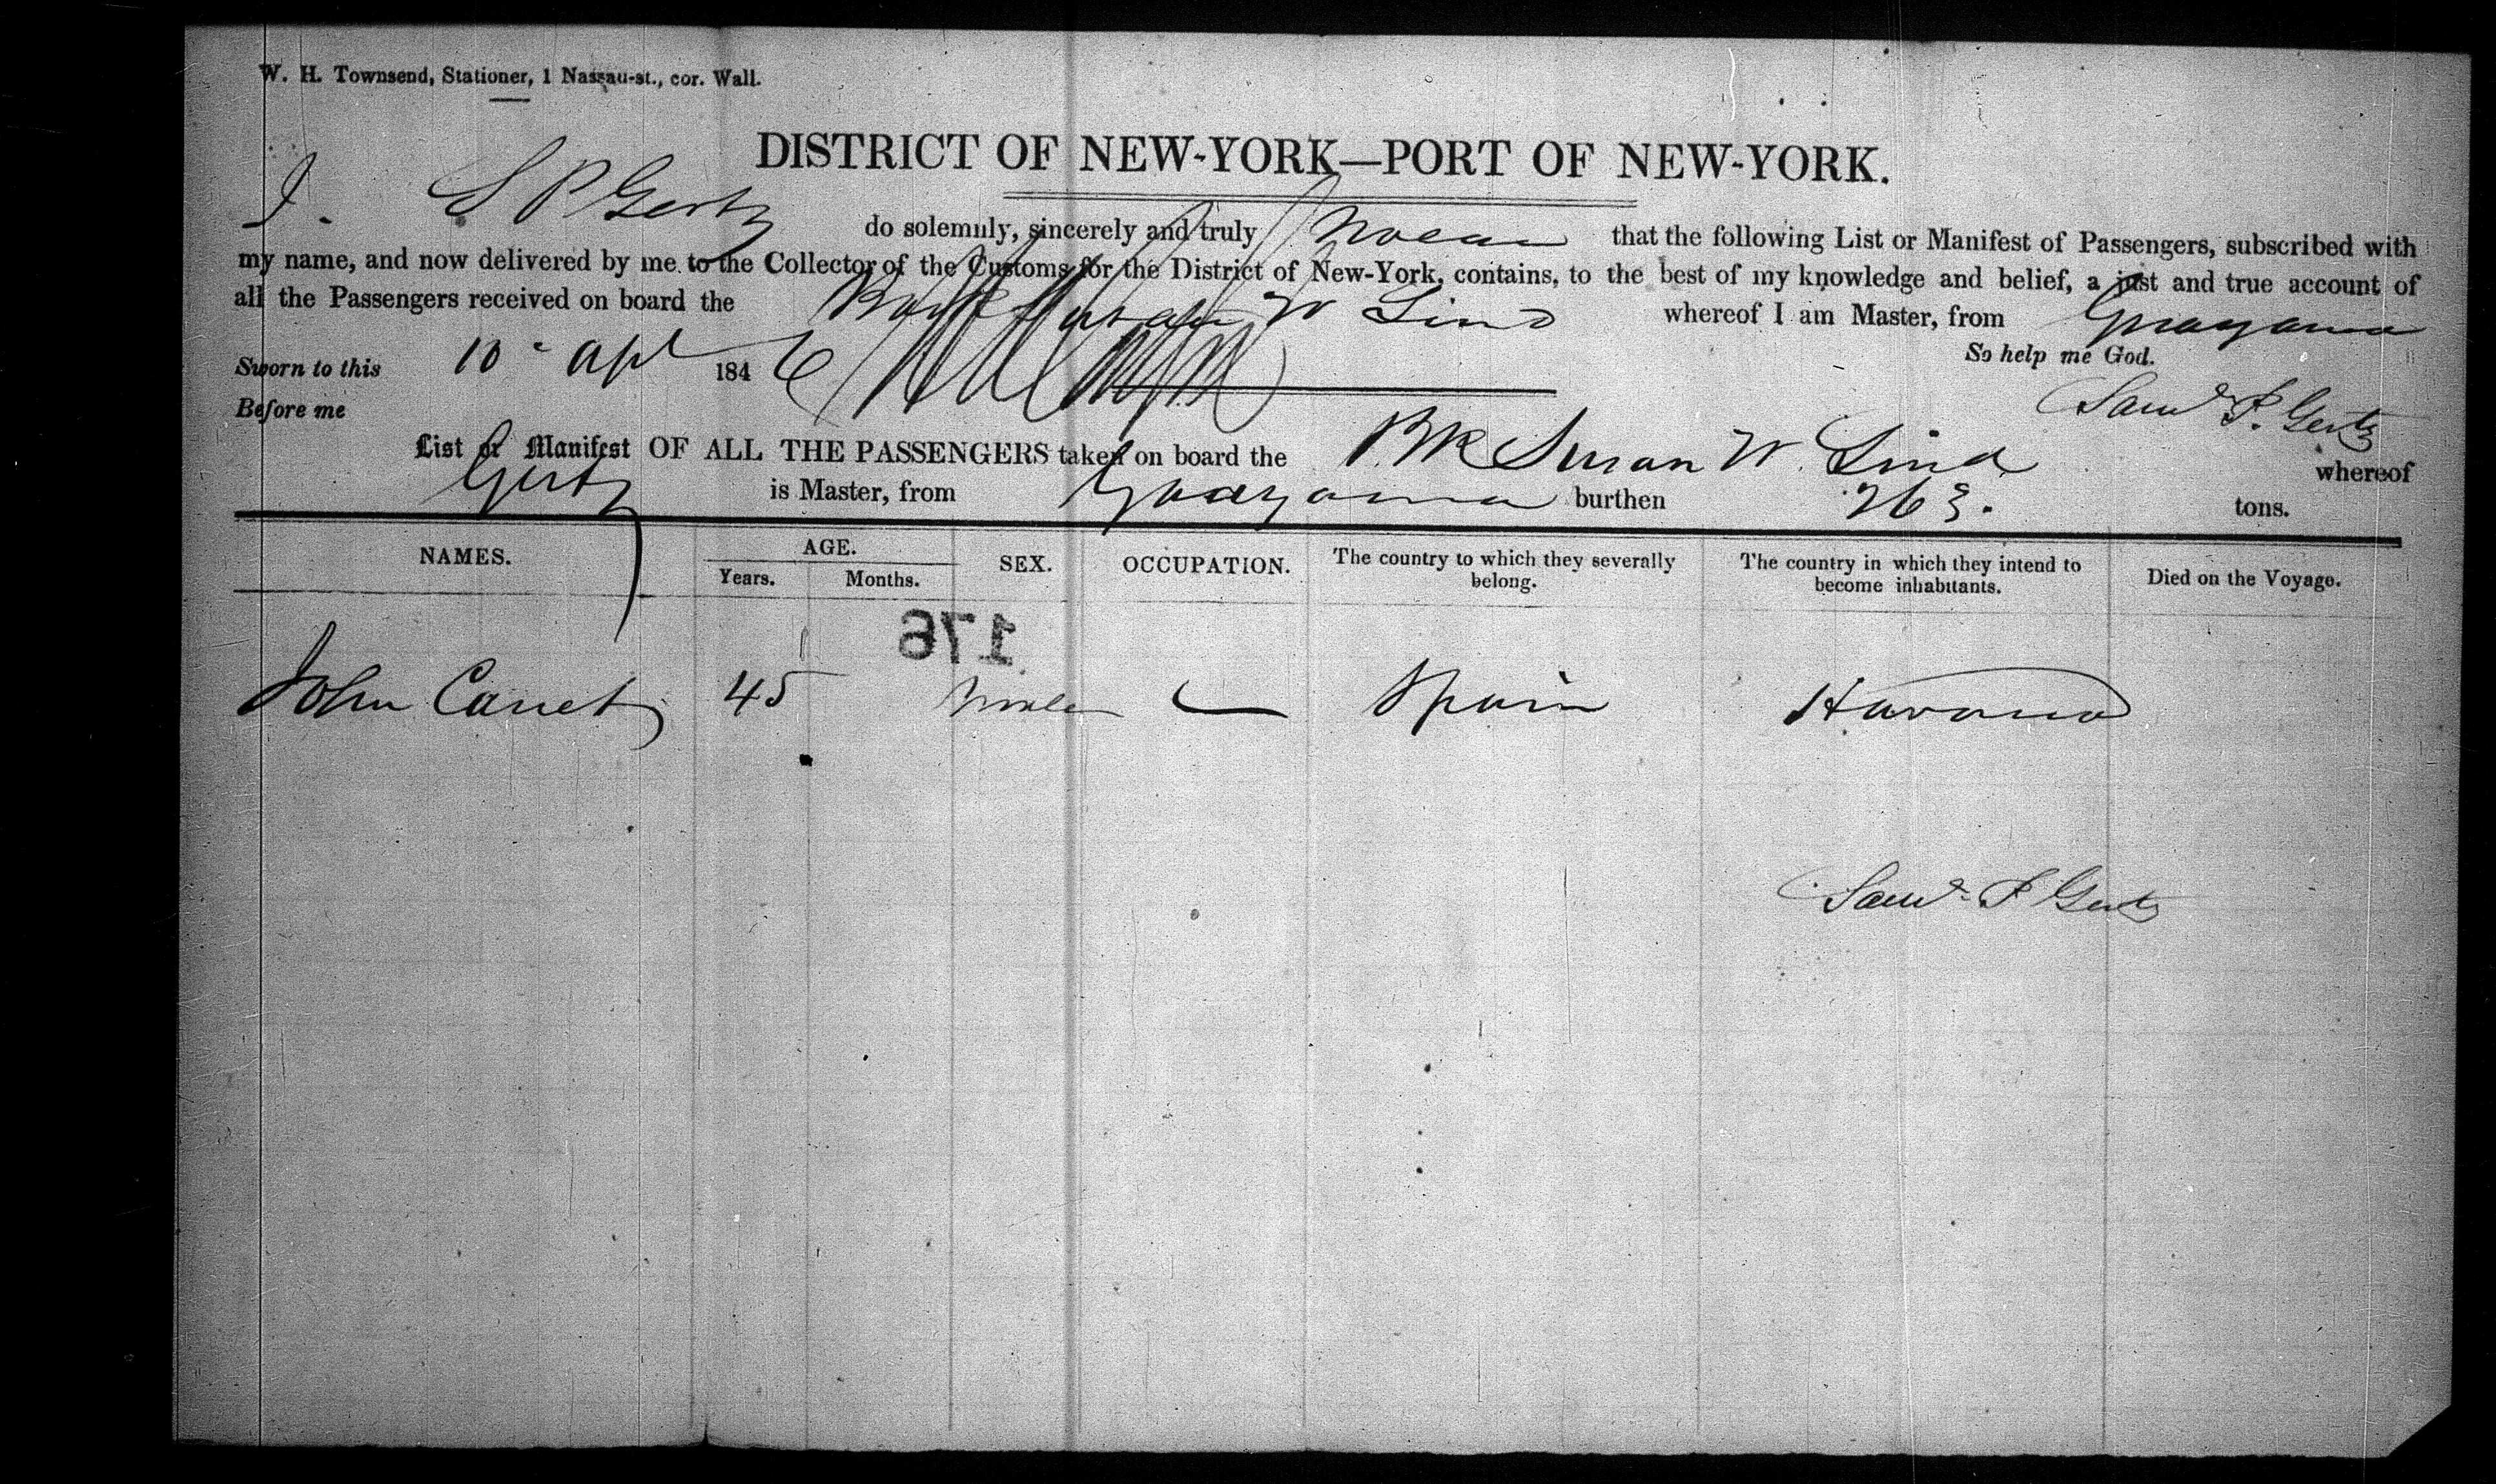 W. H. Townsend, Stationer, 1 Nassau-st., cor. Wall.
DISTRICT OF NEW-YORK—PORT OF NEW-YORK.
I S P Gerty do solemnly, sincerely and truly that the following List or Manifest of Passengers, subscribed with
my name, and now delivered by me to the Collector of the Customs for the District of New-York, contains, to the best of my knowledge and belief, a just and true account of
all the Passengers received on board the Bark Susan W Lind whereof I am Master, from Guayama
So help me God.
Sworn to this 10 apl 1846
Saml P. Gerty
Before me
List or Manifest OF ALL THE PASSENGERS taken on board the BK Susan W. Lind whereof
Gerty is Master, from Guayama burthen 263. tons.
NAMES. AGE. SEX. OCCUPATION. The country to which they severally belong. The country in which they intend to become inhabitants. Died on the Voyage.
Years. Months.
176
John Canety 45 Male — Spain Havana
Saml P Gerty